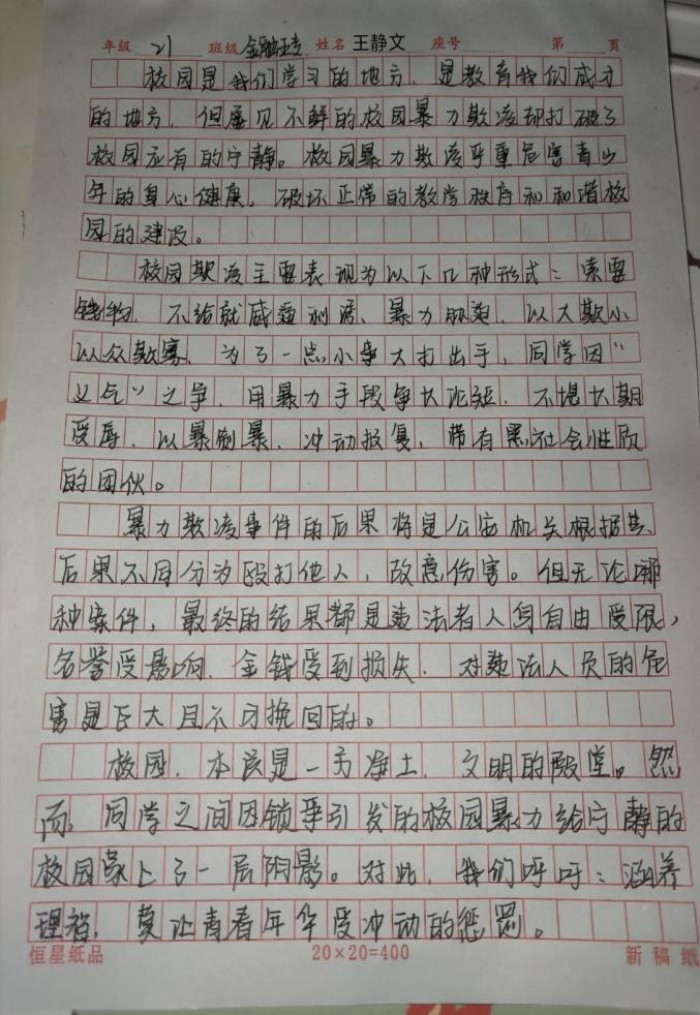 年级 21 班级 金融 姓名 王静文 座号 第 页
校园是我们学习的地方，是教育我们成才
的地方，但屡见不鲜的校园暴力欺凌却打破了
校园应有的宁静。校园暴力欺凌严重危害青少
年的身心健康，破坏正常的教学秩序和和谐校
园的建设。
校园欺凌主要表现为以下几种形式：索要
钱物，不给就威逼利诱、暴力胁迫，以大欺小
以众欺寡、为了一点小事大打出手，同学因"
义气"之争，用暴力手段争长论短，不堪长期
受辱，以暴制暴、冲动报复，带有黑社会性质
的团伙。
暴力欺凌事件的后果将是公安机关根据其
后果不同分为殴打他人，故意伤害。但无论哪
种案件，最终的结果都是违法者人身自由受限，
名誉受影响，金钱受到损失，对违法人员的危
害是巨大且不可挽回的。
校园，本该是一方净土，文明的殿堂。然
而，同学之间因锁事引发的校园暴力给宁静的
校园蒙上了一层阴影。对此，我们呼吁：涵养
理智，莫让青春年华受冲动的惩罚。
恒星纸品 20×20=400 新稿纸